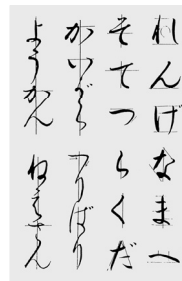 れんげ なまへ
そてつ らくだ
かいがら つりばり
ようかん ねえさん